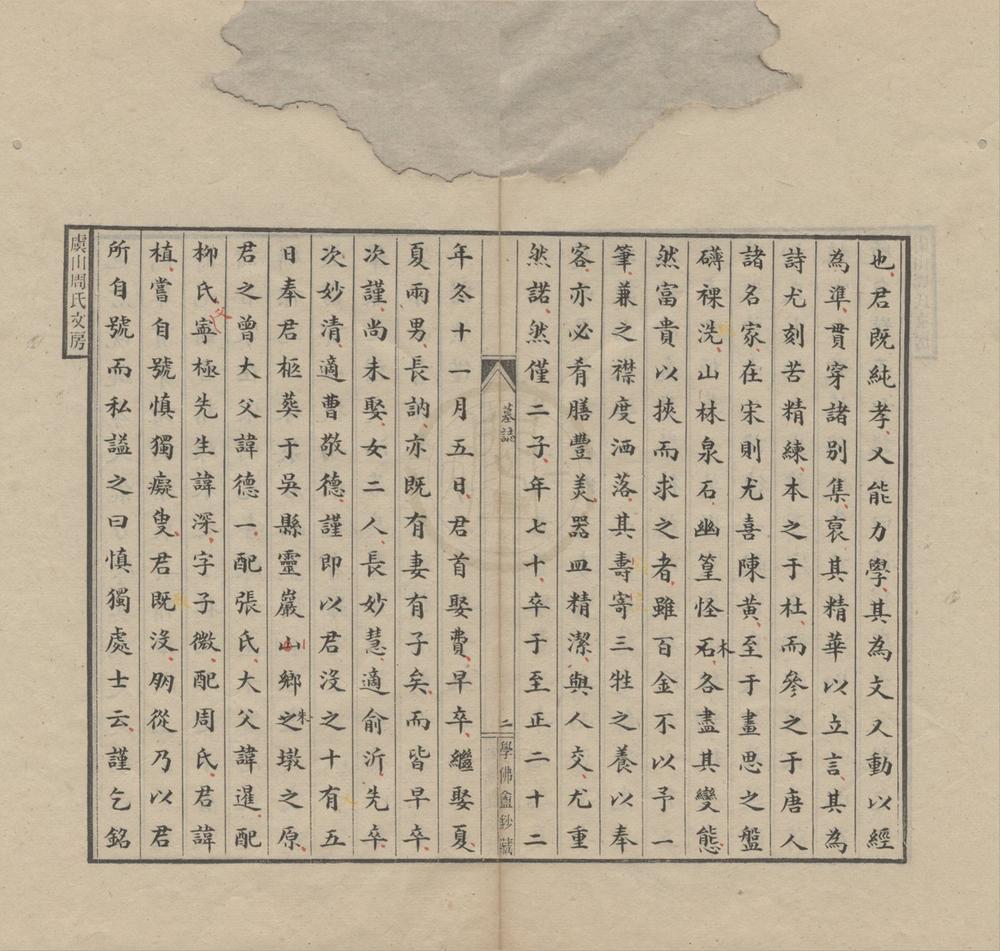 也君既純孝又能力學其為文又動以經
為準貫穿諸別集裒其精華以立言其為
詩尤刻苦精練本之于杜而參之于唐人
諸名家在宋則尤喜陳黃至于畫思之盤
礴裸洗山林泉石幽篁怪石各盡其變態
木
然富貴以挾而求之者雖百金不以予一
筆兼之襟度洒落其壽寄三牲之養以奉
客亦必肴膳豐美器皿精潔與人交尤重
然諾然僅二子年七十卒于至正二十二
墓誌
二
學佛盦鈔藏
年冬十一月五日君首娶費早卒繼娶夏
夏兩男長訥亦既有妻有子矣而皆早卒
次謹尚未娶女二人長妙慧適俞沂先卒
次妙清適曹敬德謹即以君沒之十有五
日奉君柩葬于吳縣靈巖山鄉之墩之原
朱
君之曾大父諱德一配張氏大父諱暹配
柳氏寧極先生諱深字子微配周氏君諱
父
植嘗自號慎獨癡叟君既沒朋從乃以君
所自號而私諡之曰慎獨處士云謹乞銘
虞山周氏文房